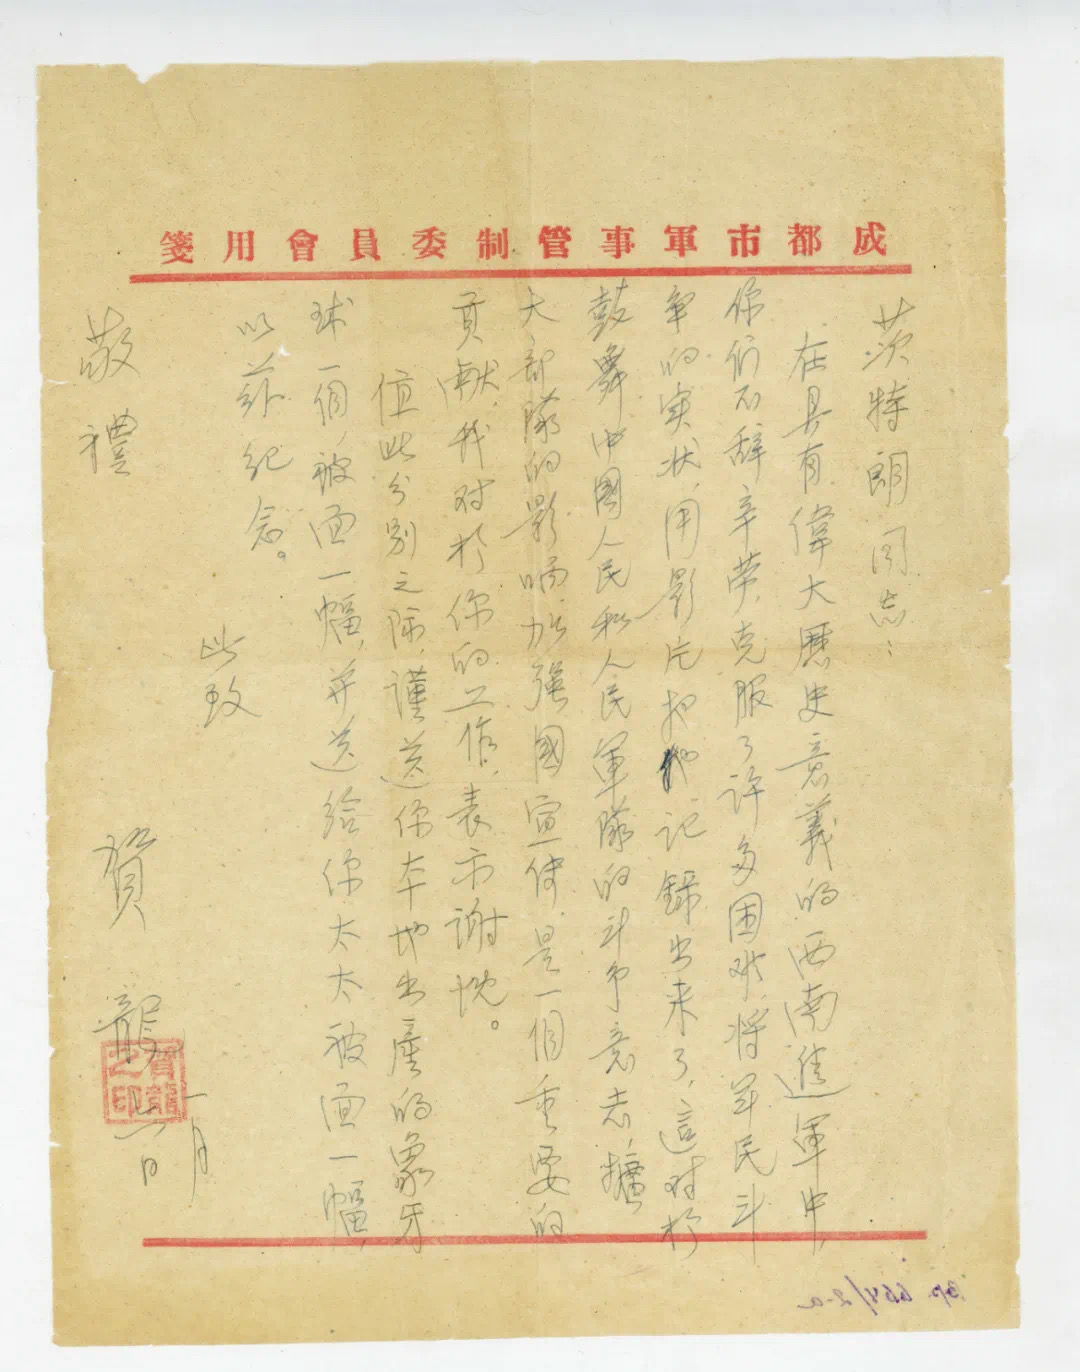 成都市軍事管制委員會用箋
茨特朗同志：
在具有偉大歷史意義的西南進軍中，
你们不辞辛劳，克服了许多困难，将军民斗
争的实状，用影片把他记錄出来了，這对於
鼓舞中國人民和人民軍隊的斗争意志，擴
大部隊的影响，加强國宣傳，是一個重要的
貢献，我对於你的工作，表示謝忱。
值此分别之际，謹送你本地出產的象牙
球一個，被面一幅，并送给你太太被面一幅，
以兹纪念。
此致
敬禮
賀龍
一月
日
賀龍之印